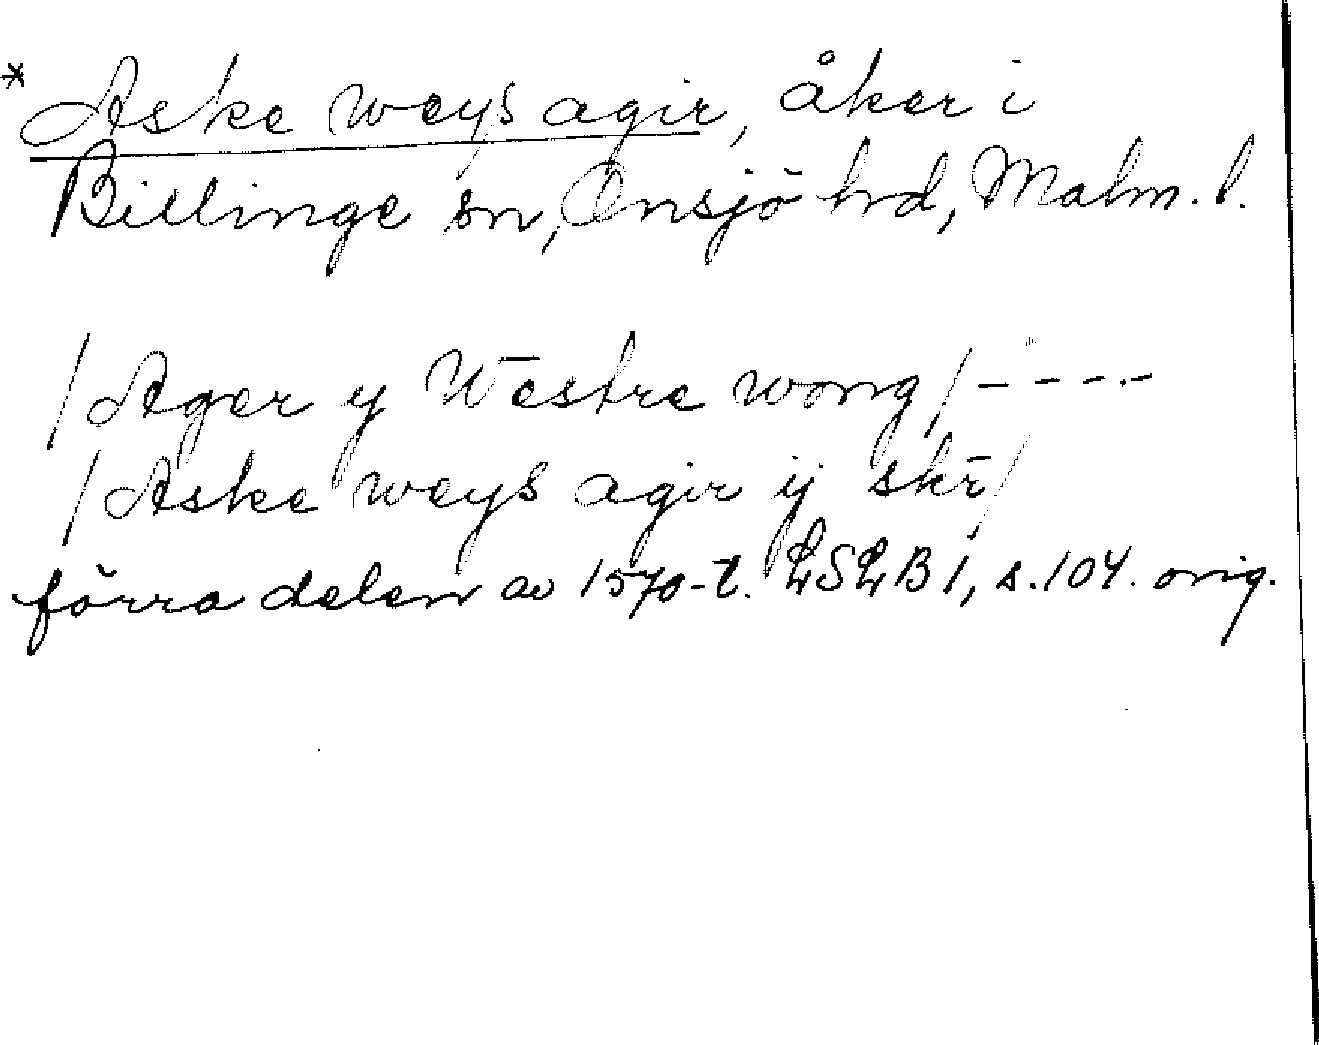 * Aske weys agir, åker i
Billinge sn, Onsjö hrd, Malm. l.
/Ager y Westre wong/ - - - -
/Aske weys agir ij skr̄/
förra delen av 1570-t. LSLB 1, s. 104. orig.